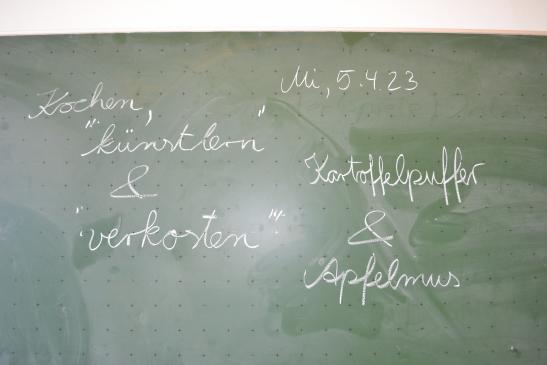 Mi, 5.4.23
Kochen,
"künstlern"
&
"verkosten"
Kartoffelpuffer
&
Apfelmus